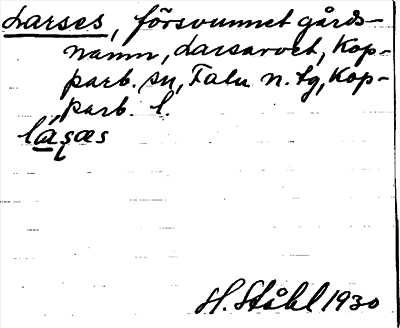 Larses, försvunnet gårds-
namn, Larsarvet, Kop-
parb. sn, Falu n. tg, Kop-
parb. l.
lásæs
H. Ståhl 1930